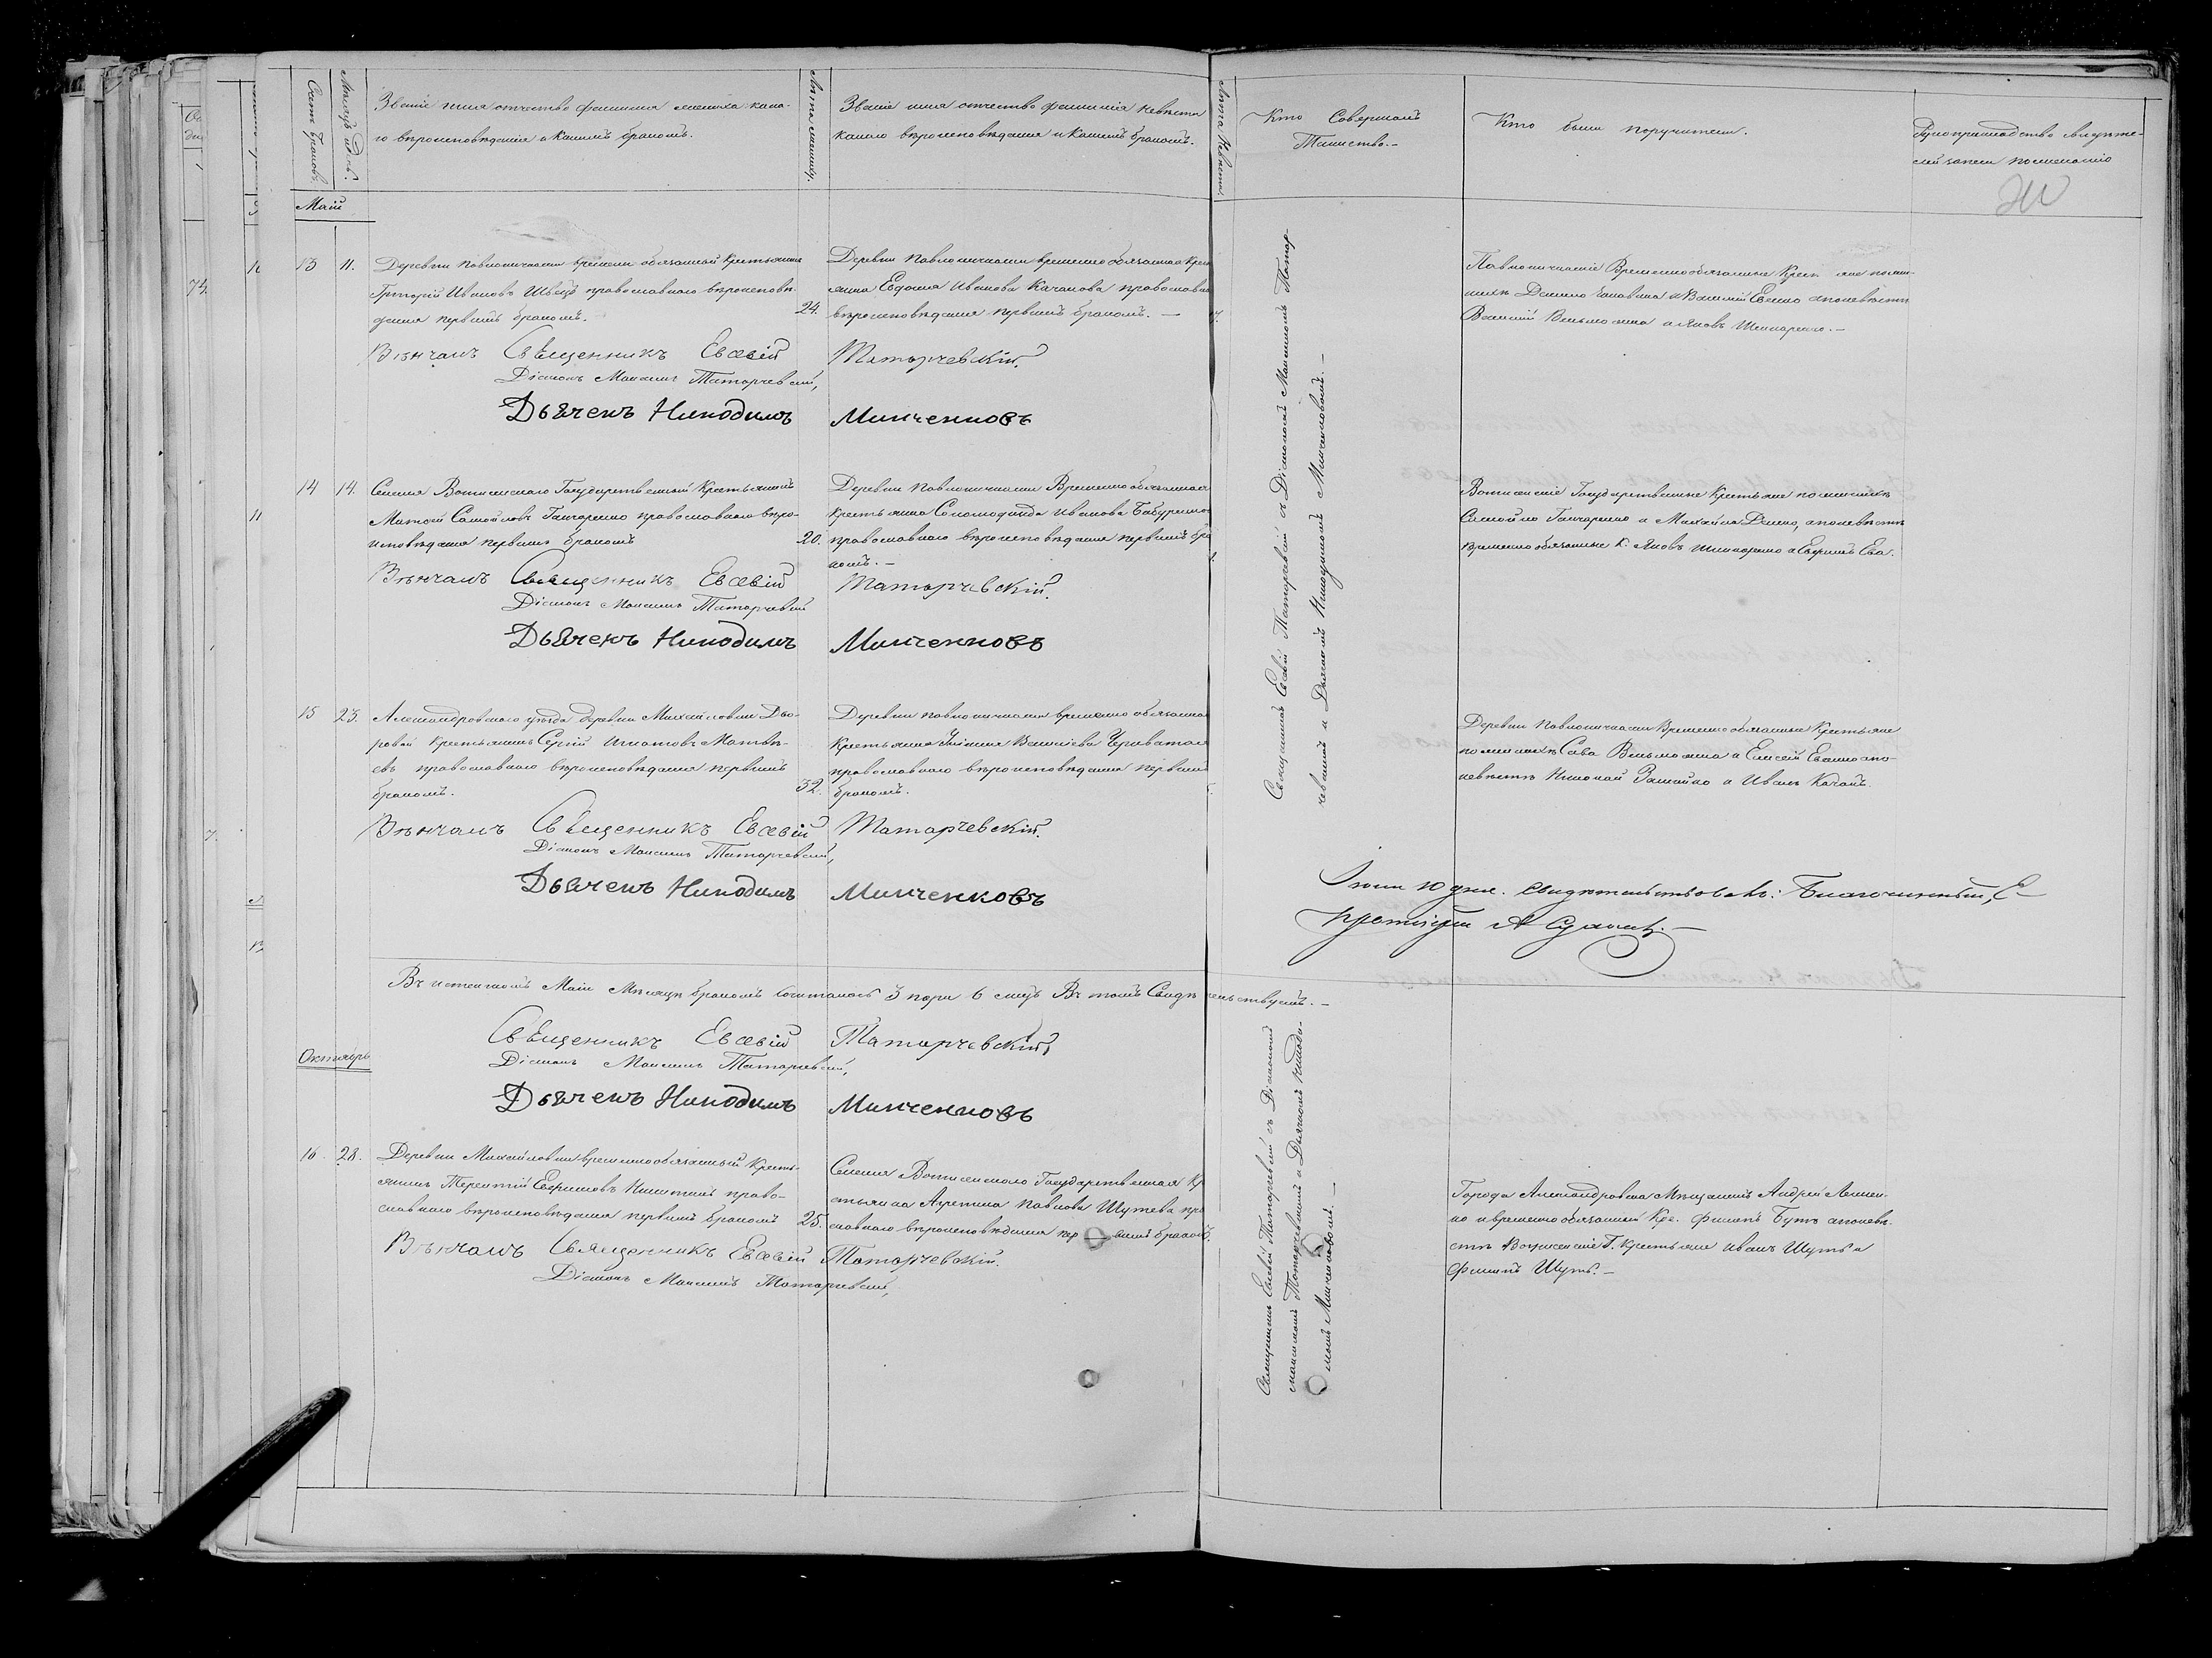 Счетъ Браковъ.
Мѣсяцъ и День.
Званіе имя отчество фамилія жениха како-
го вѣроисповѣданія и какимъ бракомъ.
Лѣта жениху.
Званіе имя отчество фамилія невѣсты
какого вѣроисповѣданія и какимъ бракомъ.
Лѣта Невесты.
Кто Совершалъ
Таинство.-
Кто были поручители.
Рукоприкладство свидѣте-
лей записи по желанію
Май
13 11. Деревни Павлокичкаси временно обязанный Крестьянинъ
Григорій Ивановъ Швецъ православнаго вѣроисповѣ-
данія первымъ бракомъ.
24.
Деревни Павлокичкаси временно обязанная Крес
янка Евдокія Иванова Качанова православна
вѣроисповѣданія первымъ бракомъ. —
Павлокичкаскіе Временнообязанные Крес яне по жени-
Василій Вельможка и Яковъ Шинкаренко.-
Вѣнчалъ Священникъ Евсевій Татарчевскій.
Діаконъ Максимъ Татарчевскій,
Дьячекъ Никодимъ Минченковъ
14 14. Селенія Вознесенскаго Государственный Крестьянинъ
Матвей Самойловъ Гончаренко православнаго вѣро-
исповѣданія первымъ бракомъ
20.
Деревни Павлокичкаси Временно обязанная
крестьянка Соломонида Иванова Бабуренко
православнаго вѣроисповѣданія первымъ бра
комъ.-
Вознесенскіе Государственные Крестьяне по женихѣ
Самойло Гончаренко и Михайло Денко, а по невѣстѣ
временно обязанные К. Яковъ Шинкаренко и Ефимъ Ева.
Вѣнчалъ Священникъ Евсевій Татарчевскій.
Діаконъ Максимъ Татарчевскій
Дьячекъ Никодимъ Минченковъ
Священникъ Евсевій Татарчевскій съ Діакономъ Максимомъ Татар-
чевскимъ и Дьячкомъ Никодимомъ Минченковымъ.-
15 23. Александровскаго уѣзда деревни Михайловки Дво-
ровой крестьянинъ Сергій Игнатовъ Матвѣ-
евъ православнаго вѣроисповѣданія первымъ
бракомъ.
32.
Деревни Павлокичкаси временно обязанная
Крестьянка
православнаго вѣроисповѣданія первымъ
бракомъ.
Деревни Павлокичкаси Временно обязанные Крестьяне
по женихѣ Сава Вельможка и Елисей Евенко а по
невѣстѣ Николай Замайко и Иванъ Качанъ.
Вѣнчалъ Священникъ Евсевій Татарчевскій.
Діаконъ Максимъ Татарчевскій,
Дьячекъ Никодимъ Минченковъ
Іюня 10 дня. свидѣтельствовалъ: Благочинный,
Протоіерей А
Въ истекшомъ Маи Мѣсяцѣ бракомъ сочиталось 3 пары 6 лицъ Въ томъ Свидѣтельствуемъ.-
Священникъ Евсевій Татарчевскій,
Діаконъ Максимъ Татарчевскій,
Дьячекъ Никодимъ Минченковъ
Октябрь
16. 28. Деревни Михайловки временнообязанный Кресть-
янинъ Терентій Ефимовъ Никитинъ право-
славнаго вѣроисповѣданія первымъ бракомъ
25.
Селенія Вознесенскаго Государственная Кр
стьянка Агрепина Павлова Шутева пра
славнаго вѣроисповѣданія первымъ бракомъ.
Города Александровска Мѣщанинъ Андрей
ко и временно обязанный Кре. Филипъ Бутъ а по невѣ-
стѣ Вознесенскіе Г. Крестьяне Иванъ Шутъ и
Филипъ Шутъ.-
Вѣнчалъ Священникъ Евсевій Татарчевскій.
Діаконъ Максимъ Татарчевскій,
Священникъ Евсевій Татарчевскій съ Діакономъ
Максимомъ Татарчевскимъ и Дьячкомъ Никоди-
момъ Минченковымъ.-